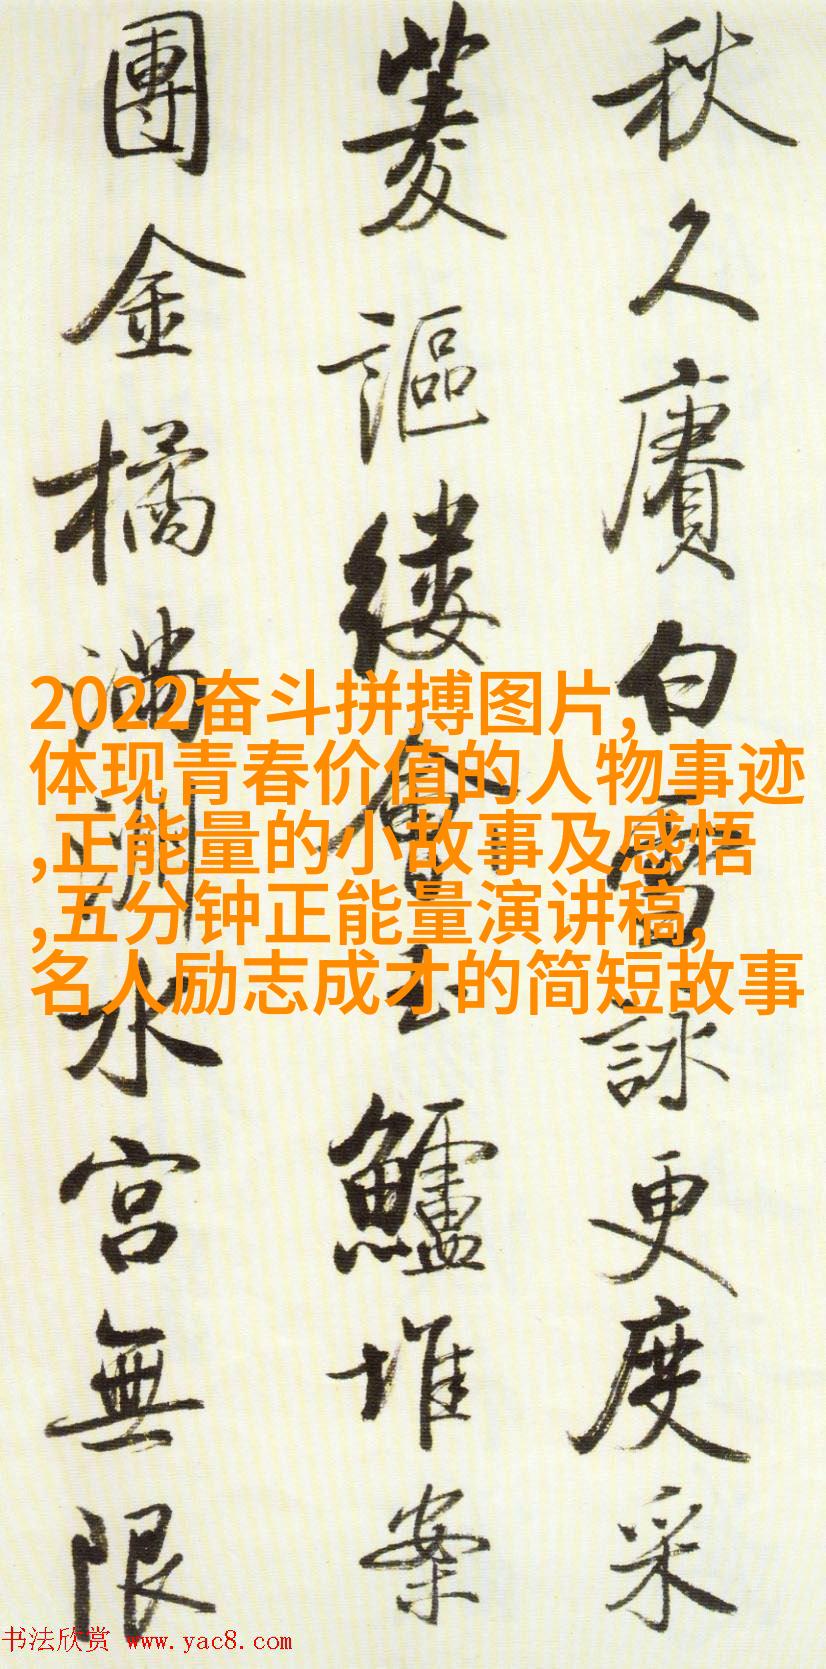 秋久賡白雪詠更度采
菱謳縷會玉鱸堆案
團金橘滿洲水宮無限
2022奋斗拼搏图片,
体现青春价值的人物事迹
,正能量的小故事及感悟
,五分钟正能量演讲稿,
名人励志成才的简短故事
书法欣赏 www.yac8.com